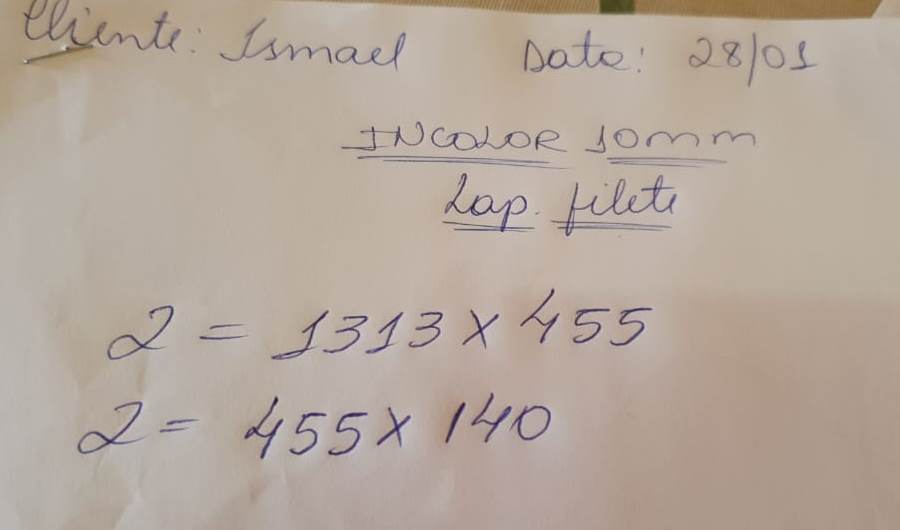 Cliente: Ismael Data: 28/01
INCOLOR 10mm
Lap. filete
2 = 1313 x 455
2 = 455 x 140